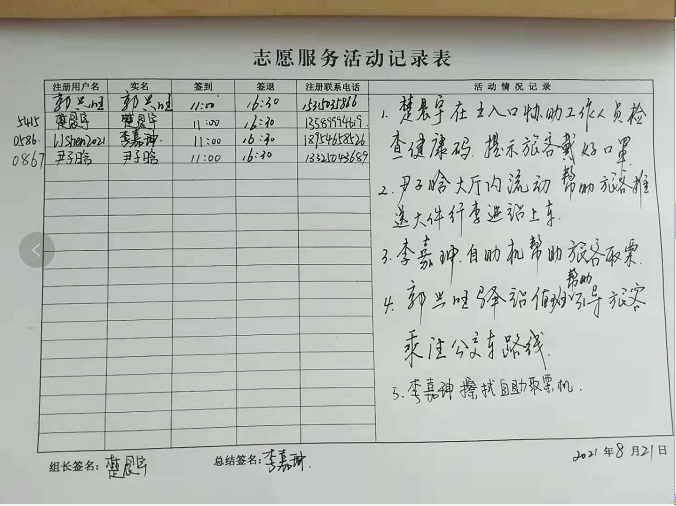 志愿服务活动记录表
注册用户名 实名 签到 签退 注册联系电话 活动情况记录
郭兴旺 郭兴旺 11:00 16:30
5415 楚晨宇 楚晨宇 11:00 16:30
0586. 李嘉珅 11:00 16:30
0867 尹子晗 尹子晗 11:00 16:30 13325043689
1. 楚晨宇在主入口协助工作人员检
查健康码.提示旅客戴好口罩
2. 尹子晗大厅内流动帮助旅客推
送大件行李进站上车.
3. 李嘉珅.自助机帮助旅客取票.
4. 郭兴旺驿站值班帮助引导旅客
乘注公交车路线.
5. 李嘉珅擦拭自助取票机.
组长签名: 楚晨宇 总结签名: 李嘉珅.
2021年8月21日